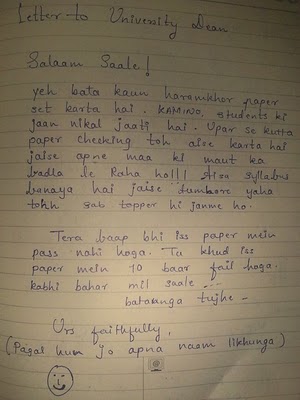 Letter to University Dean
Salaam Saale!
yeh bata kaun haramkhor paper
set karta hai. KAMINO, students ki
jaan nikal jaati hai. Upar se kutta
paper checking toh aise karta hai
jaise apne maa ki maut ka
badla le Raha ho!!! Itna syllabus
banaya hai jaise tumhare yaha
tohh sab topper hi janme ho.
Tera baap bhi iss paper mein
pass nahi hoga. Tu khud iss
paper mein 10 baar fail hoga.
kabhi bahar mil saale ---
bataunga tujhe -
Urs faithfully,
(Pagal hum jo apna naam likhunga)